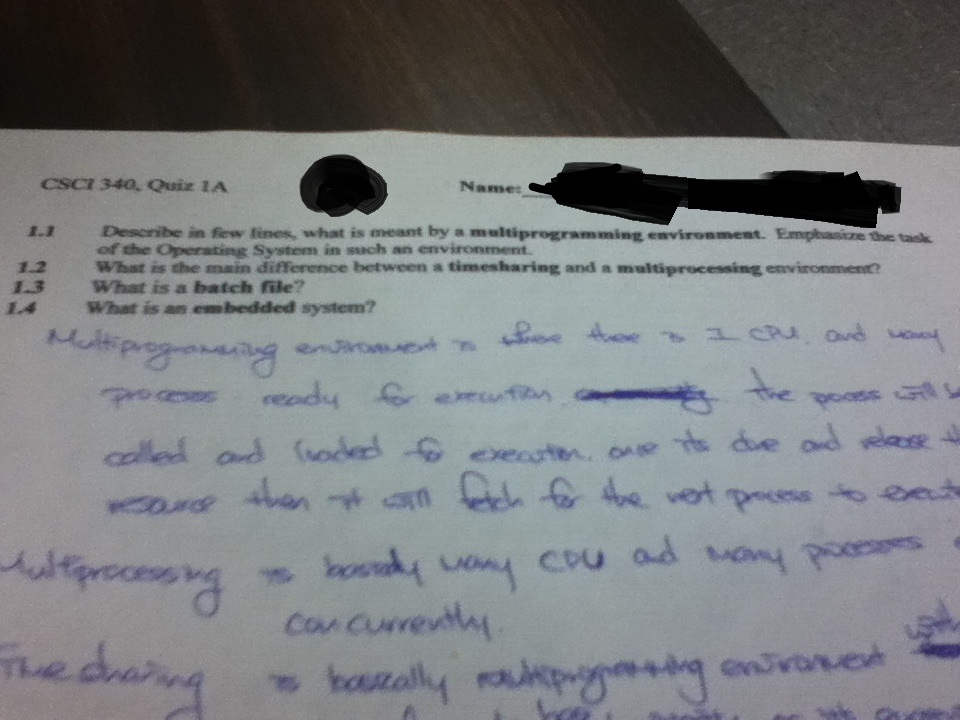 CSCI 340, Quiz 1A Name:
1.1 Describe in few lines, what is meant by a multiprogramming environment. Emphasize the task
of the Operating System in such an environment.
1.2 What is the main difference between a timesharing and a multiprocessing environment?
1.3 What is a batch file?
1.4 What is an embedded system?
Multiprogramming environment is where there is 1 CPU, and many
processes ready for execution the process will
called and loaded for execution. once its done and release
resource then it will fetch for the next process to execute
Multiprocessing is basically many CPU and many processes
concurrently.
Time sharing is basically multiprogramming environment with